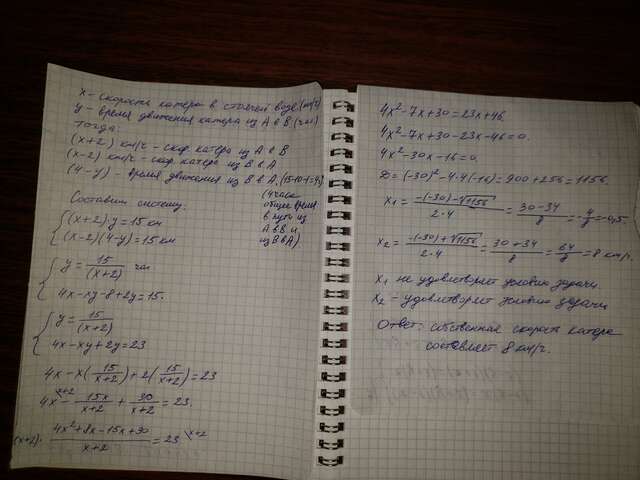 x - скорость катера в стоячей воде (км/ч)
y - время движения катера из A в B (час)
Тогда:
(x+2) км/ч - скор. катера из A в B
(x-2) км/ч - скор катера из B в A
(4-y) - время движения из B в A. (15-10-1=4ч)
Составим систему:
(4 часа
общее время
в пути из
A в B и
из B в A)
{(x+2)·y=15 км
(x-2)(4-y)=15 км
{y=15/(x+2) час
4x-xy-8+2y=15.
{y=15/(x+2)
4x-xy+2y=23
4x-x(15/x+2)+2(15/x+2)=23
4x\x+2 - 15x/x+2 + 30/x+2 = 23.
(x+2)· 4x²+8x-15x+30/x+2 = 23\x+2
4x²-7x+30=23x+46
4x²-7x+30-23x-46=0.
4x²-30x-16=0.
D=(-30)²-4·4(-16)=900+256=1156.
x₁=-(-30)-√1156/2·4=30-34/8=-4/8=-0,5
x₂=-(-30)+√1156/2·4=30+34/8=64/8=8 км/ч.
x₁ не удовлетворяет условию задачи.
x₂ - удовлетворяет условию задачи
Ответ: собственная скорость катера
составляет 8 км/ч.